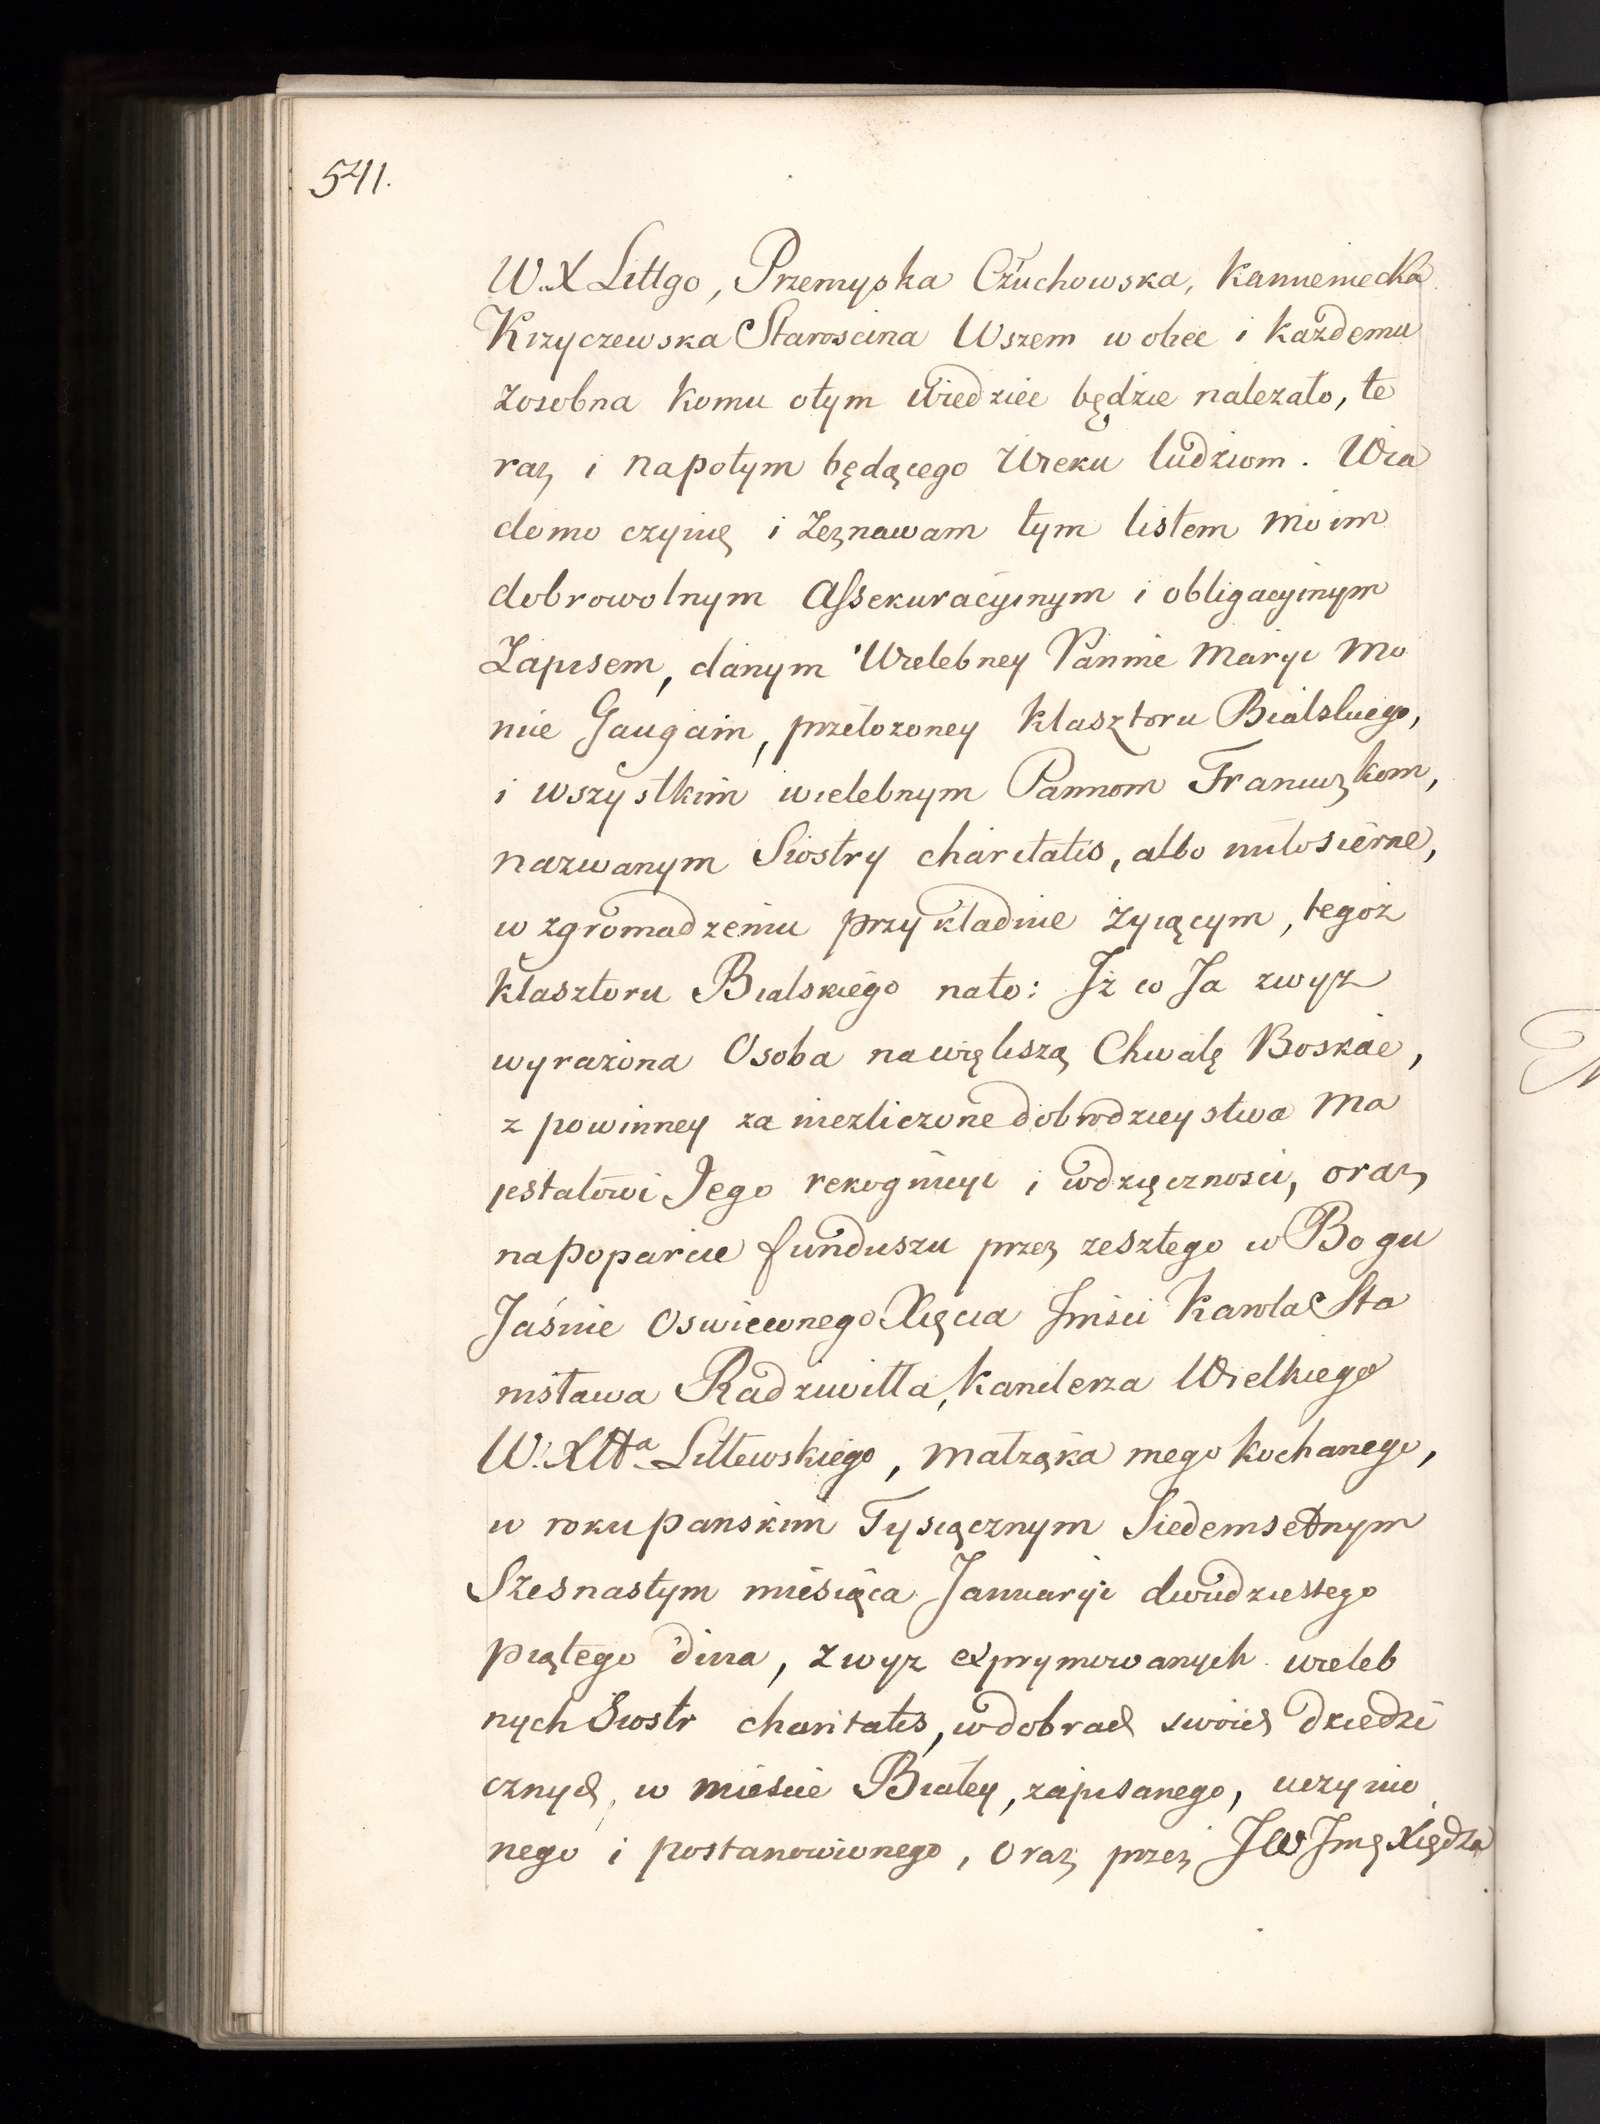 541.
W. X Littgo, Przemyska Człuchowska, Kamieniecka
Krzyczewska Starościna Wszem wobec i każdemu
zosobna komu otym wiedziec będzie nalezało, te
raz i napotym będącego wieku ludziom. Wia
domo czynię i zeznawam tym listem moim
dobrowolnym Assekuracyinym i obligacyinym
Zapisem, danym Wielebney Pannie Maryi Mo
nie Gaugain, przełozoney klasztoru Bialskiego,
i wszystkim wielebnym Pannom Francuzkom,
nazwanym Siostry charitatis, albo miłosierne,
w zgromadzeniu przykładnie zyiącym, tegoż
klasztoru Bialskiego nato: Iż co Ja zwyz
wyrażona Osoba nawiększą Chwałę Boskąe,
z powinney za niezliczone dobrodzieystwa Ma
jestatowi Jego rekognicyi i wdzięcznosci, oraz
napoparcie funduszu przez zeszłego w Bogu
Jaśnie Oswieconego Xięcia Jmści Karola Sta
nisława Radziwiłła, Kanclerza Wielkiego
W. X Ha Littewskiego, małząka mego kochanego,
w roku panskim Tysiącznym Siedemsetnym
Szesnastym miesiąca Januaryi dwudziestego
piątego dnia, zwyz exprymowanych wieleb
nych Siostr charitatis, wdobrach swoich dziedzi
cznych, w miescie Białey, zapisanego, uczynio
nego i postanowionego, oraz przez JW Jmę Xiędza